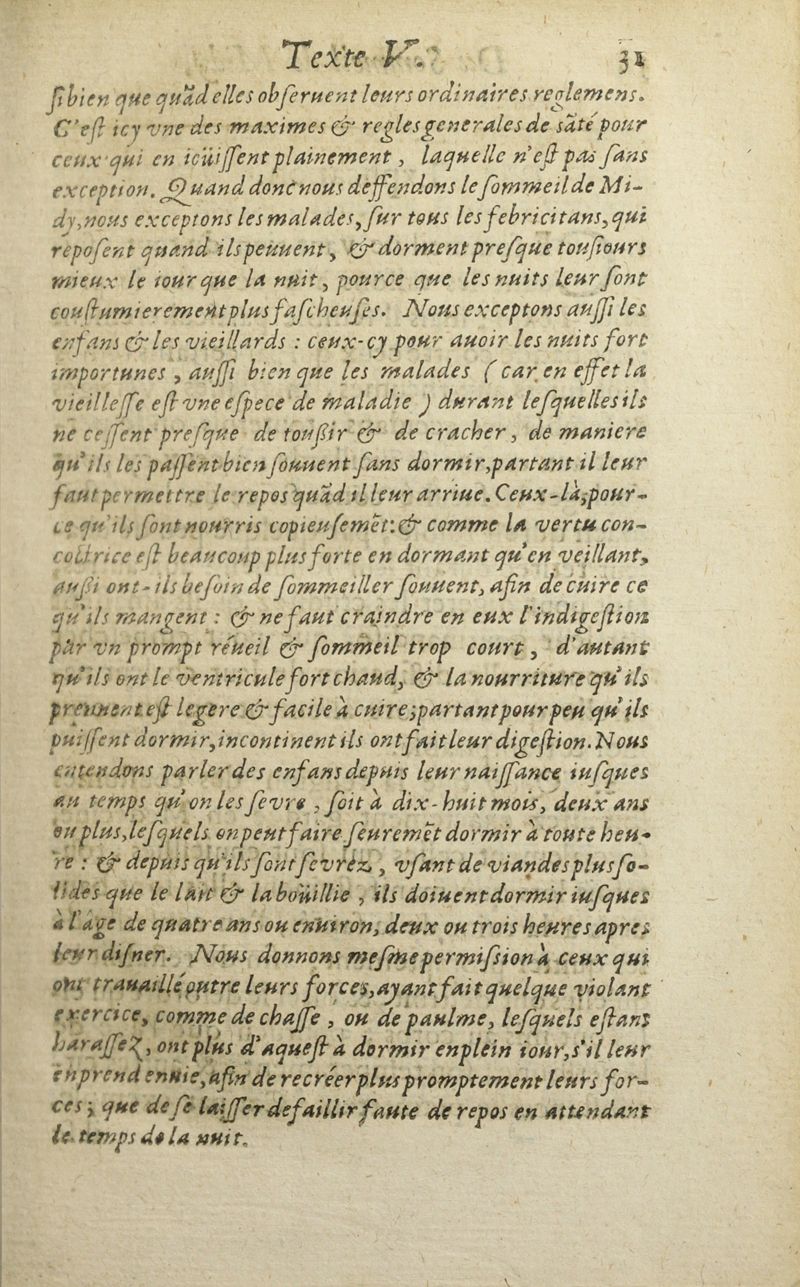 Texte V. 31
ſi bien que quãd elles obſeruent leurs ordinaires reglemens.
C'eſt icy vne des maximes & regles generales de sãté pour
ceux qui en ioüiſſent plainement, laquelle n'eſt pas ſans
exception. Quand donc nous deffendons le ſommeil de Mi-
dy, nous exceptons les malades, ſur tous les febricitans, qui
repoſent quand ils peuuent, & dorment preſque touſiours
mieux le iour que la nuit, pource que les nuits leur ſont
couſtumierement plus faſcheuſes. Nous exceptons auſſi les
enfans & les vieillards : ceux-cy pour auoir les nuits fort
importunes, auſſi bien que les malades (car en effet la
vieilleſſe eſt vne eſpece de maladie) durant leſquelles ils
ne ceſſent preſque de touſſir & de cracher, de maniere
qu'ils les paſſent bien ſouuent ſans dormir, partant il leur
faut permettre le repos quãd il leur arriue. Ceux-là, pour-
ce qu'ils ſont nourris copieuſemẽt: & comme la vertu con-
coctrice eſt beaucoup plus forte en dormant qu'en veillant,
auſſi ont-ils beſoin de ſommeiller ſouuent, afin de cuire ce
qu'ils mangent : & ne faut craindre en eux l'indigeſtion
par vn prompt réueil & ſommeil trop court, d'autant
qu'ils ont le ventricule fort chaud, & la nourriture qu'ils
prennent eſt legere & facile à cuire; partant pour peu qu'ils
puiſſent dormir, incontinent ils ont fait leur digeſtion. Nous
entendons parler des enfans depuis leur naiſſance iuſques
au temps qu'on les ſevre, ſoit à dix-huit mois, deux ans
ou plus, leſquels on peut faire ſeuremẽt dormir à toute heu-
re : & depuis qu'ils ſont ſevréz, vſant de viandes plus ſo-
lides que le lait & la boüillie, ils doiuent dormir iuſques
à l'âge de quatre ans ou enuiron, deux ou trois heures apres
leur diſner. Nous donnons meſme permiſsion à ceux qui
ont trauaillé outre leurs forces, ayant fait quelque violant
exercice, comme de chaſſe, ou de paulme, leſquels eſtans
haraſſez, ont plus d'aqueſt à dormir en plein iour, s'il leur
en prend enuie, afin de recréer plus promptement leurs for-
ces; que de ſe laiſſer defaillir faute de repos en attendant
le temps de la nuit.